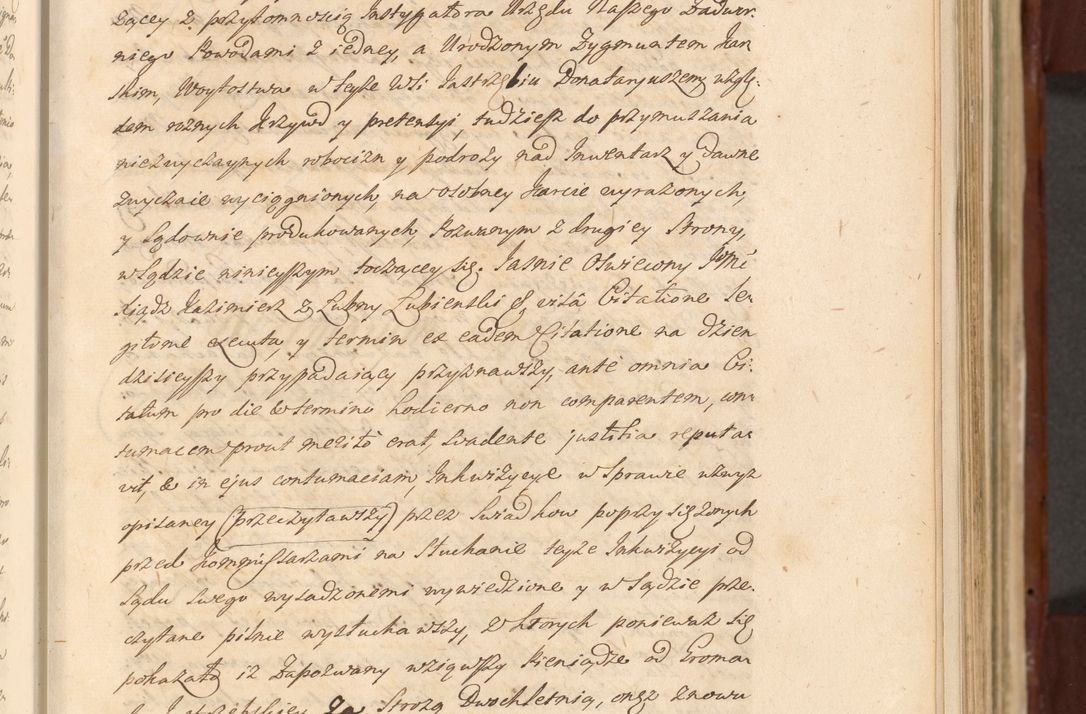 żącey z przytomnością Instygatora Urzędu Naszego Zadwor:
niego Powodami z iedney, a Urodzonym Zygmuntem Kar
skim, Woytostwa w teyże Wsi Jastrzębiu Donataryuszem wzglę:
dem roznych Krzywd y pretensyi, tudziesz do przymuszania
niezwyczaynych robocizn y podroży nad Inwentarz y dawne
zwyczaie wyciągnionych, na osobney Karcie wyrażonych,
y Sądownie produkowanych Pozwanym z drugiey Strony,
w Sądzie ninieyszym toczącey się. Jasnie Oswiecony Jmć
Xiądz Kazimierz z Łubny Łubienski visâ Citatione le
gitime executa, y termin ex eadem Citatione na dzien
dzisieyszy przypadaiący przyznawszy, ante omnia Ci:
tatum pro die & termino hodierno non comparentem, con
tumacem prout meritò erat, suadente justitia reputa
vit, & in ejus contumaciam, Inkwizycye w Sprawie wzwyz
opisaney (przeczytawszy) przez Swiadkow poprzysiężonych
przed Kommissarzami na słuchanie teyże Inkwizycyi od
Sądu swego wysadzonemi wywiedzione y w Sądzie prze:
czytane pilnie wysłuchawszy, z ktorych ponieważ się
pokazało iż Zapozwany wziąwszy Pieniądze od Groma
za Strożą Dwochletnią, oraz znowu